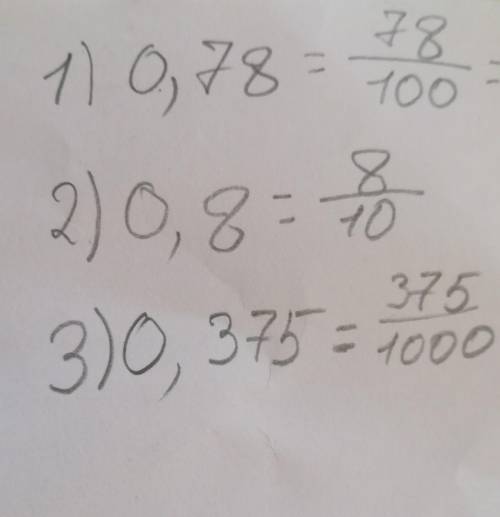 1) 0,78 = 78/100 =
2) 0,8 = 8/10
3) 0,375 = 375/1000